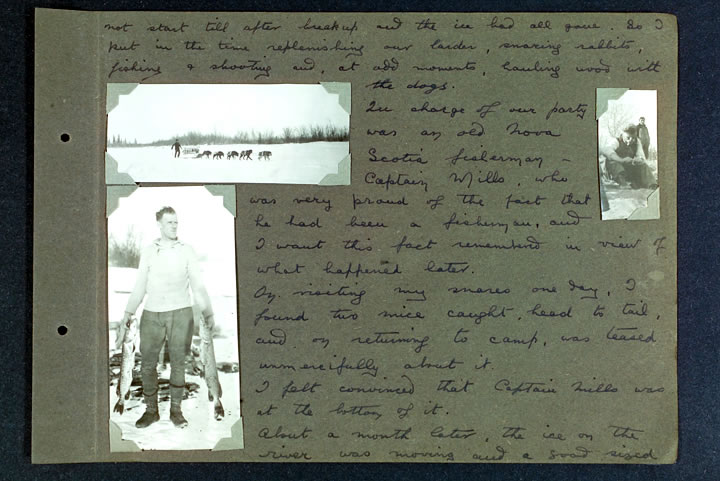 not start till after breakup and the ice had all gone. So I
put in the time replenishing our larder, snaring rabbits,
fishing & shooting and, at odd moments, hauling wood with
the dogs.
In charge of our party
was an old Nova
Scotia fisherman –
Captain Mills, who
was very proud of the fact that
he had been a fisherman, and
I want this fact remembered in view of
what happened later.
On visiting my snares one day, I
found two mice caught, head to tail,
and on returning to camp, was teased
unmercifully about it.
I felt convinced that Captain Mills was
at the bottom of it.
About a month later, the ice on the
river was moving and a good sized